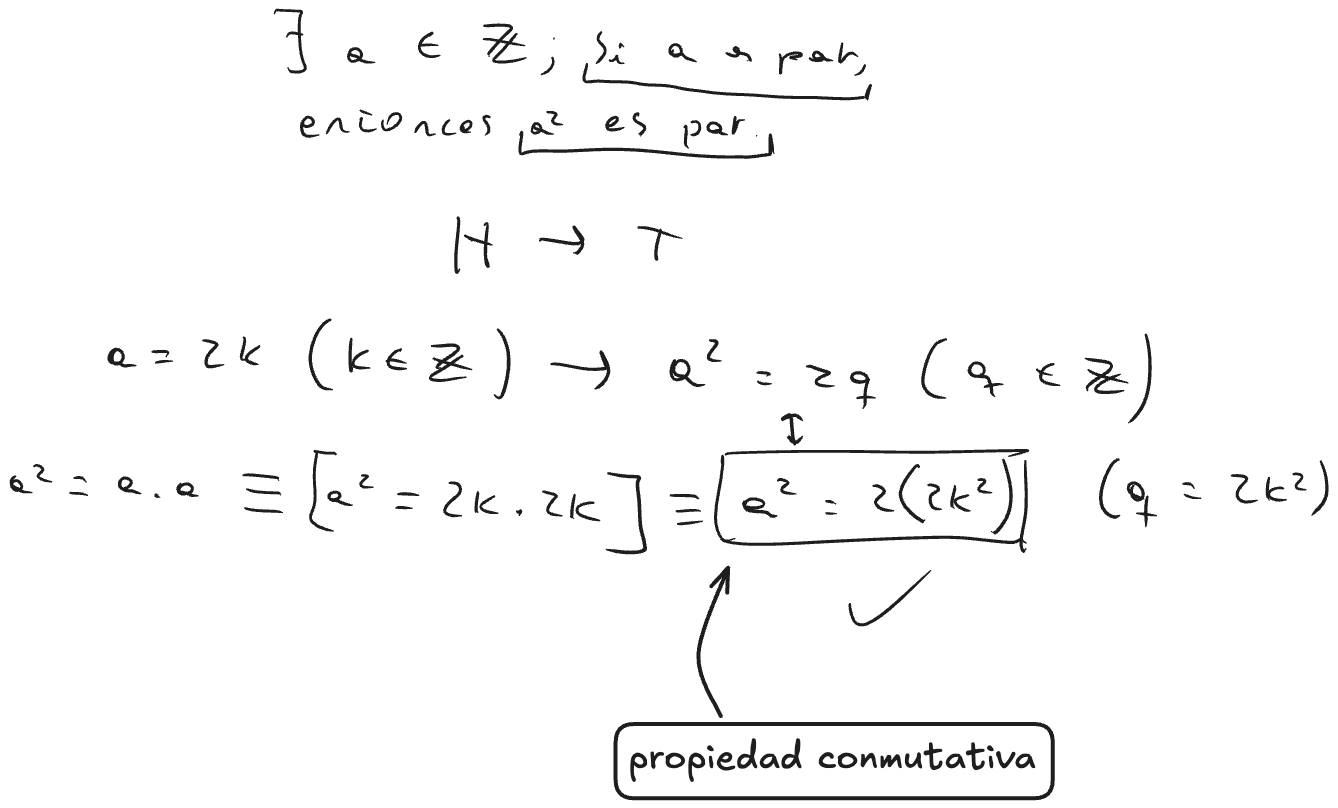 ∃ a ∈ ℤ; Si a es par,
entonces a² es par.
H → T
a = 2k (k ∈ ℤ) → a² = 2q (q ∈ ℤ)
↕
a² = a . a ≡ [a² = 2k . 2k] ≡ a² = 2(2k²) (q = 2k²)
✓
propiedad conmutativa